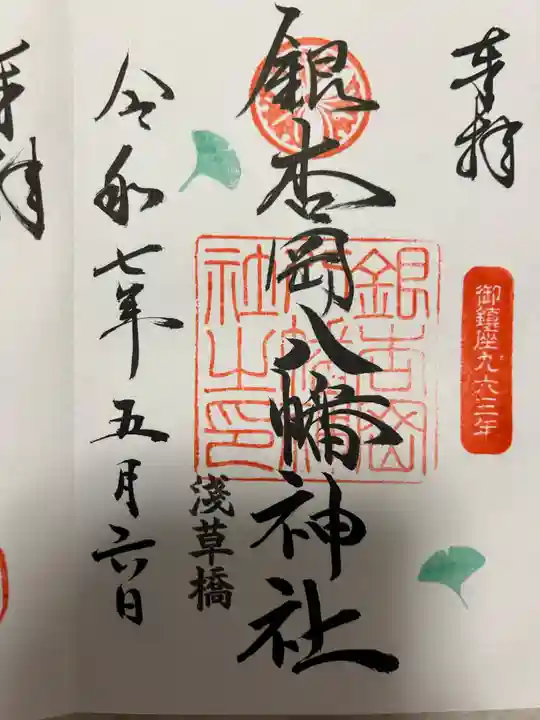 奉拝
御鎮座九六三年
銀杏岡八幡神社
銀杏岡
八幡神
社之印
浅草橋
令和七年五月六日
奉拝